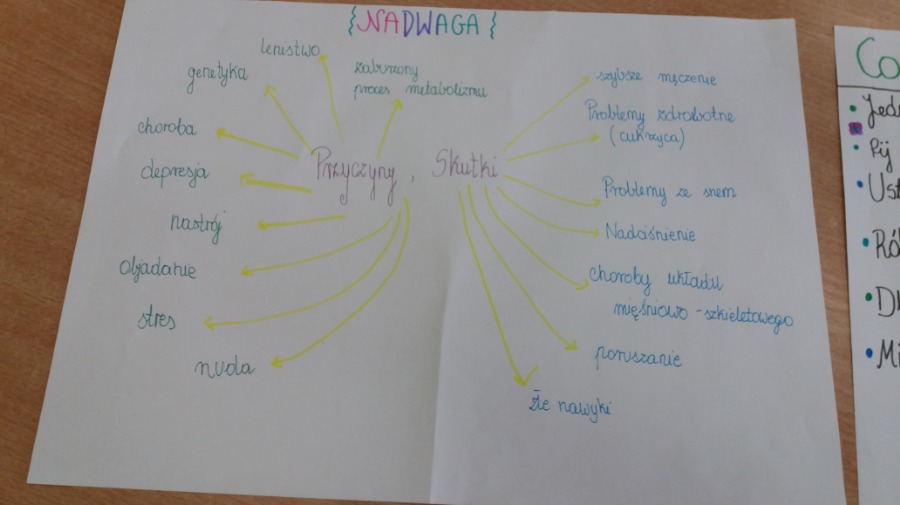 {NADWAGA{
lenistwo
genetyka
zaburzony
proces metabolizmu
choroba
depresja
nastrój
objadanie
stres
nuda
Przyczyny, Skutki
szybsze męczenie
Problemy zdrowotne
(cukrzyca)
Problemy ze snem
Nadciśnienie
choroby układu
mięśniowo-szkieletowego
poruszanie
złe nawyki
Co
Jed
Pij
Ust
Ró
Mi